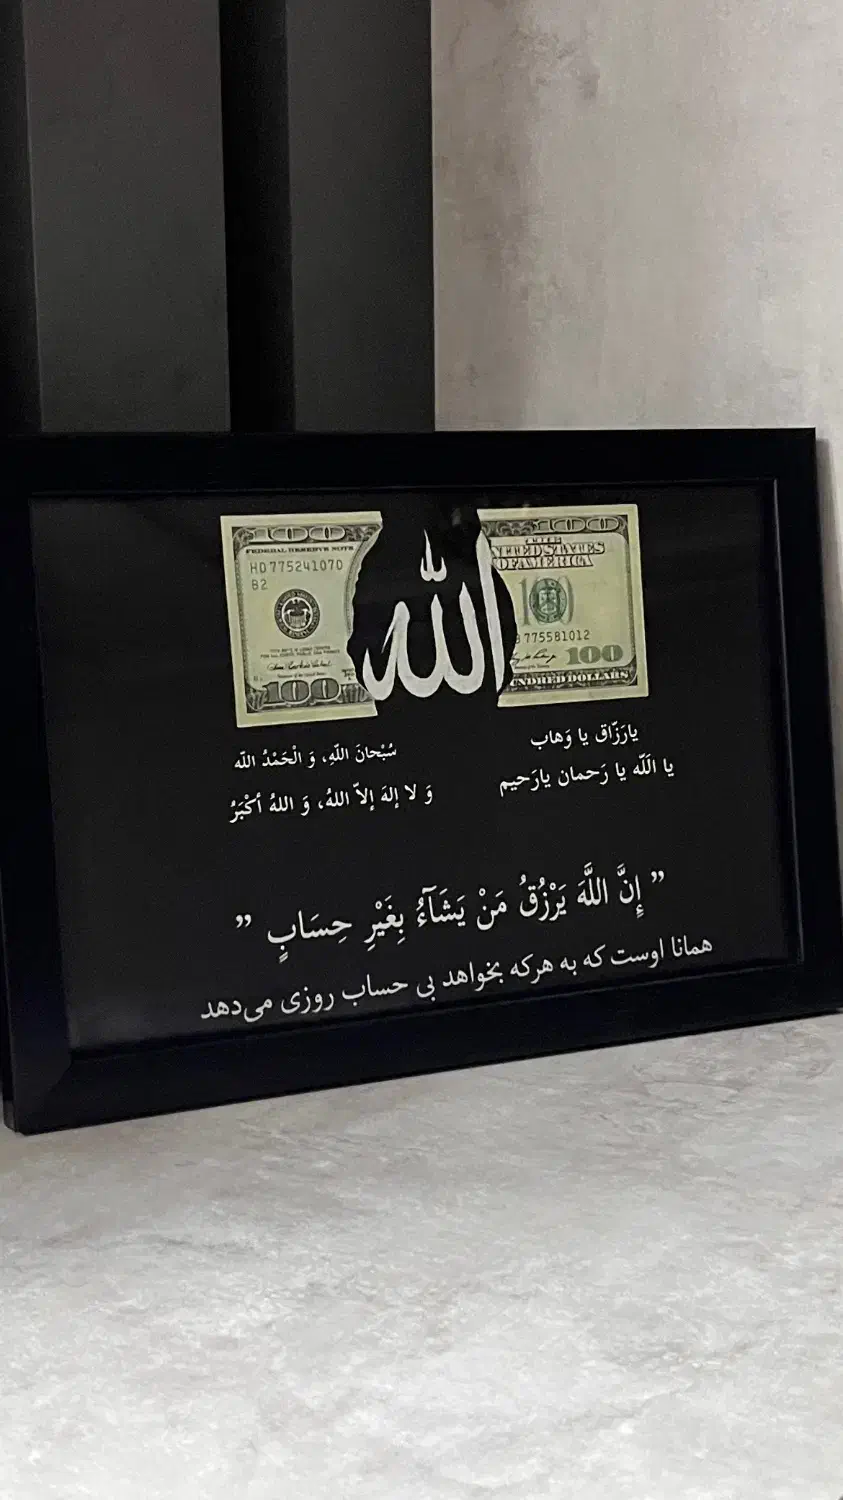 100 100
FEDERAL RESERVE NOTE
HD 77524107D
B2
100
الله
THE
UNITED STATES
OF AMERICA
100
775581012
100
UNDRED DOLLARS
یارَزّاق یا وَهاب
یا اللّه یا رَحمان یارَحیم
سُبْحانَ اللّهِ، وَ الْحَمْدُ اللّه
وَ لا إلهَ إلاّ اللهُ، وَ اللهُ أكْبَرُ
” إِنَّ اللَّهَ يَرْزُقُ مَنْ يَشَآءُ بِغَيْرِ حِسَابٍ ”
همانا اوست که به هرکه بخواهد بی حساب روزی می‌دهد